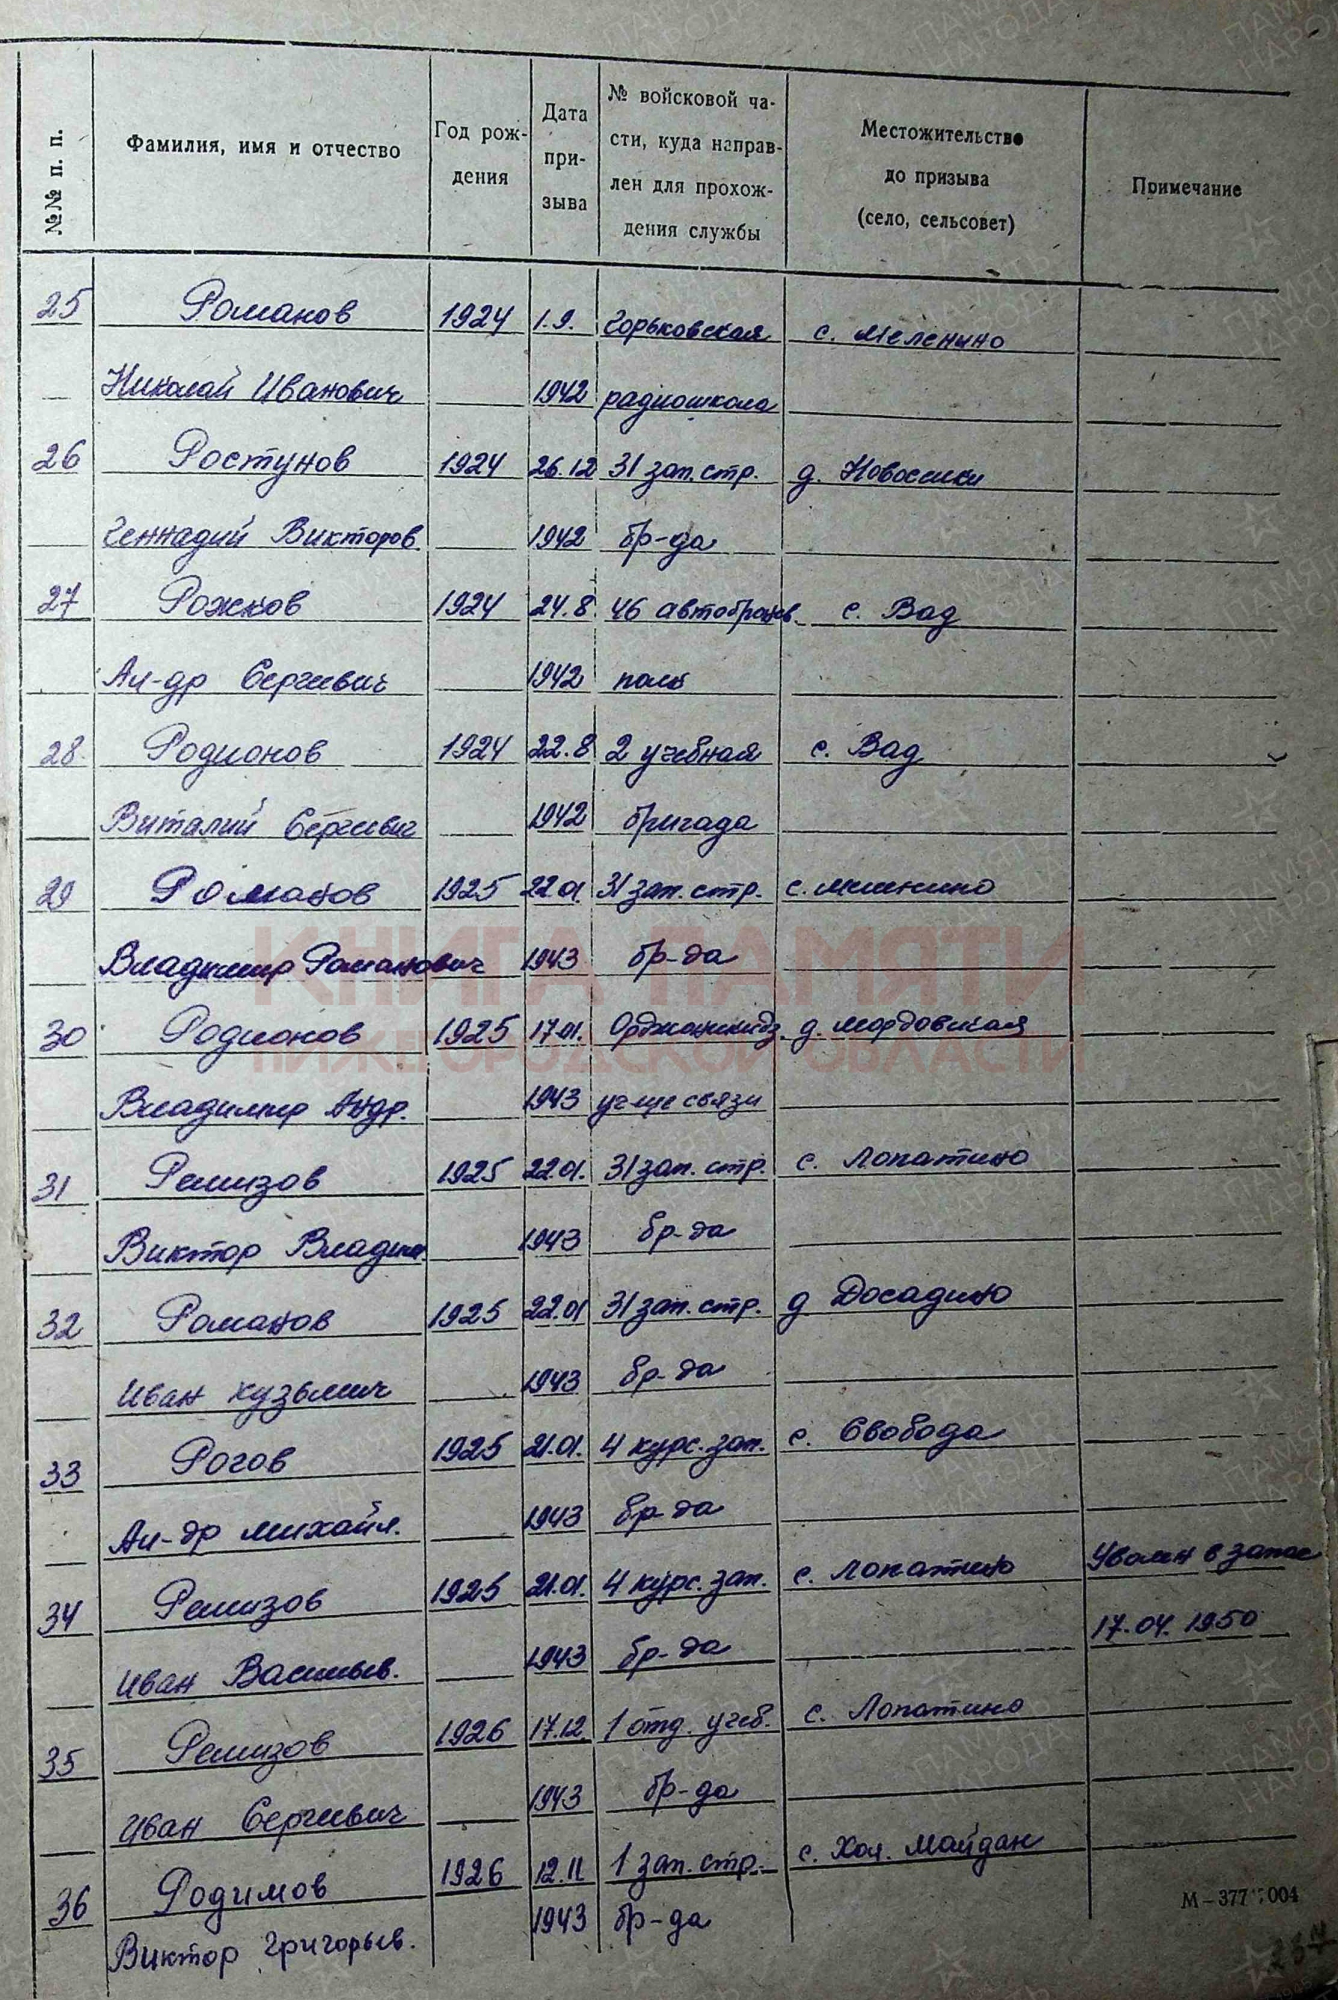 №№ п. п. Фамилия, имя и отчество Год рож- Дата № войсковой ча- Местожительство Примечание
дения при- сти, куда направ- до призыва
зыва лен для прохож- (село, сельсовет)
дения службы
25 Романов 1924 1.9. Горьковская с. Меленино
Николай Иванович 1942 радиошкола
26 Ростунов 1924 26.12 31 зап. стр. д.
Геннадий Викторов. 1942 бр-да
27 Рожков 1924 24.8. 46 автобронев. с. Вад
Ал-др Сергеевич 1942 полк
28. Родионов 1924 22.8 2 учебная с. Вад
Виталий Сергеевич 1942 бригада
29 Романов 1925 22.01 31 зап. стр. с.
Владимир Романович 1943 бр-да
30 Родионов 1925 17.01. Орджоникидз. д. Мордовская
Владимир Андр. 1943 уч-ще связи
31 Ремизов 1925 22.01. 31 зап. стр. с. Лопатино
Виктор Владим. 1943 бр-да
32 Романов 1925 22.01 31 зап. стр. д Досадино
Иван Кузьмич 1943 бр-да
33 Рогов 1925 21.01. 4 курс. зап. с. Свобода
Ал-др Михайл. 1943 бр-да
34 Ремизов 1925 21.01. 4 курс. зап. с. Лопатино Уволен в запас
Иван Васильев. 1943 бр-да 17.04.1950
35 Ремизов 1926 17.12. 1 отд. учеб. с. Лопатино
Иван Сергеевич 1943 бр-да
36 Родимов 1926 12.11 1 зап. стр. с. Хол. Майдан
Виктор Григорьев. 1943 бр-да
КНИГА ПАМЯТИ
НИЖЕГОРОДСКОЙ ОБЛАСТИ